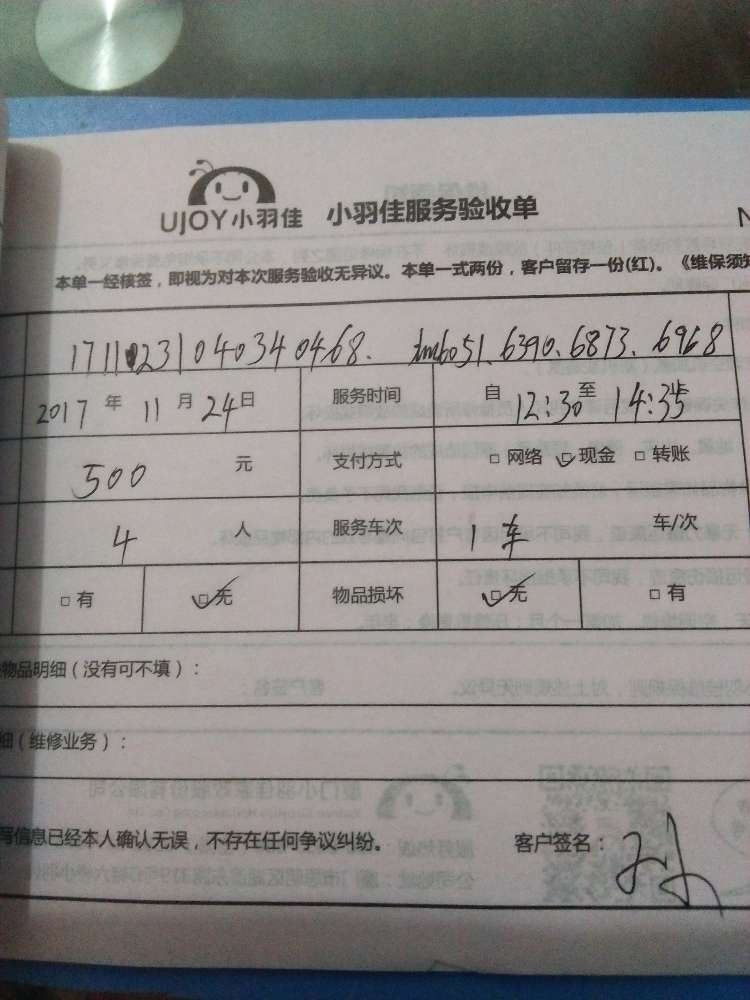 UJOY小羽佳 小羽佳服务验收单
本单一经核签，即视为对本次服务验收无异议。本单一式两份，客户留存一份(红)。《维保须知
17110231040340468. xm6051.6390.6873.6968
2017年11月24日 服务时间 自12:30至14:35止
500元 支付方式 □网络 ☑现金 □转账
4人 服务车次 1车 车/次
□有 ☑无 物品损坏 ☑无 □有
物品明细（没有可不填）：
细（维修业务）：
写信息已经本人确认无误，不存在任何争议纠纷。 客户签名：